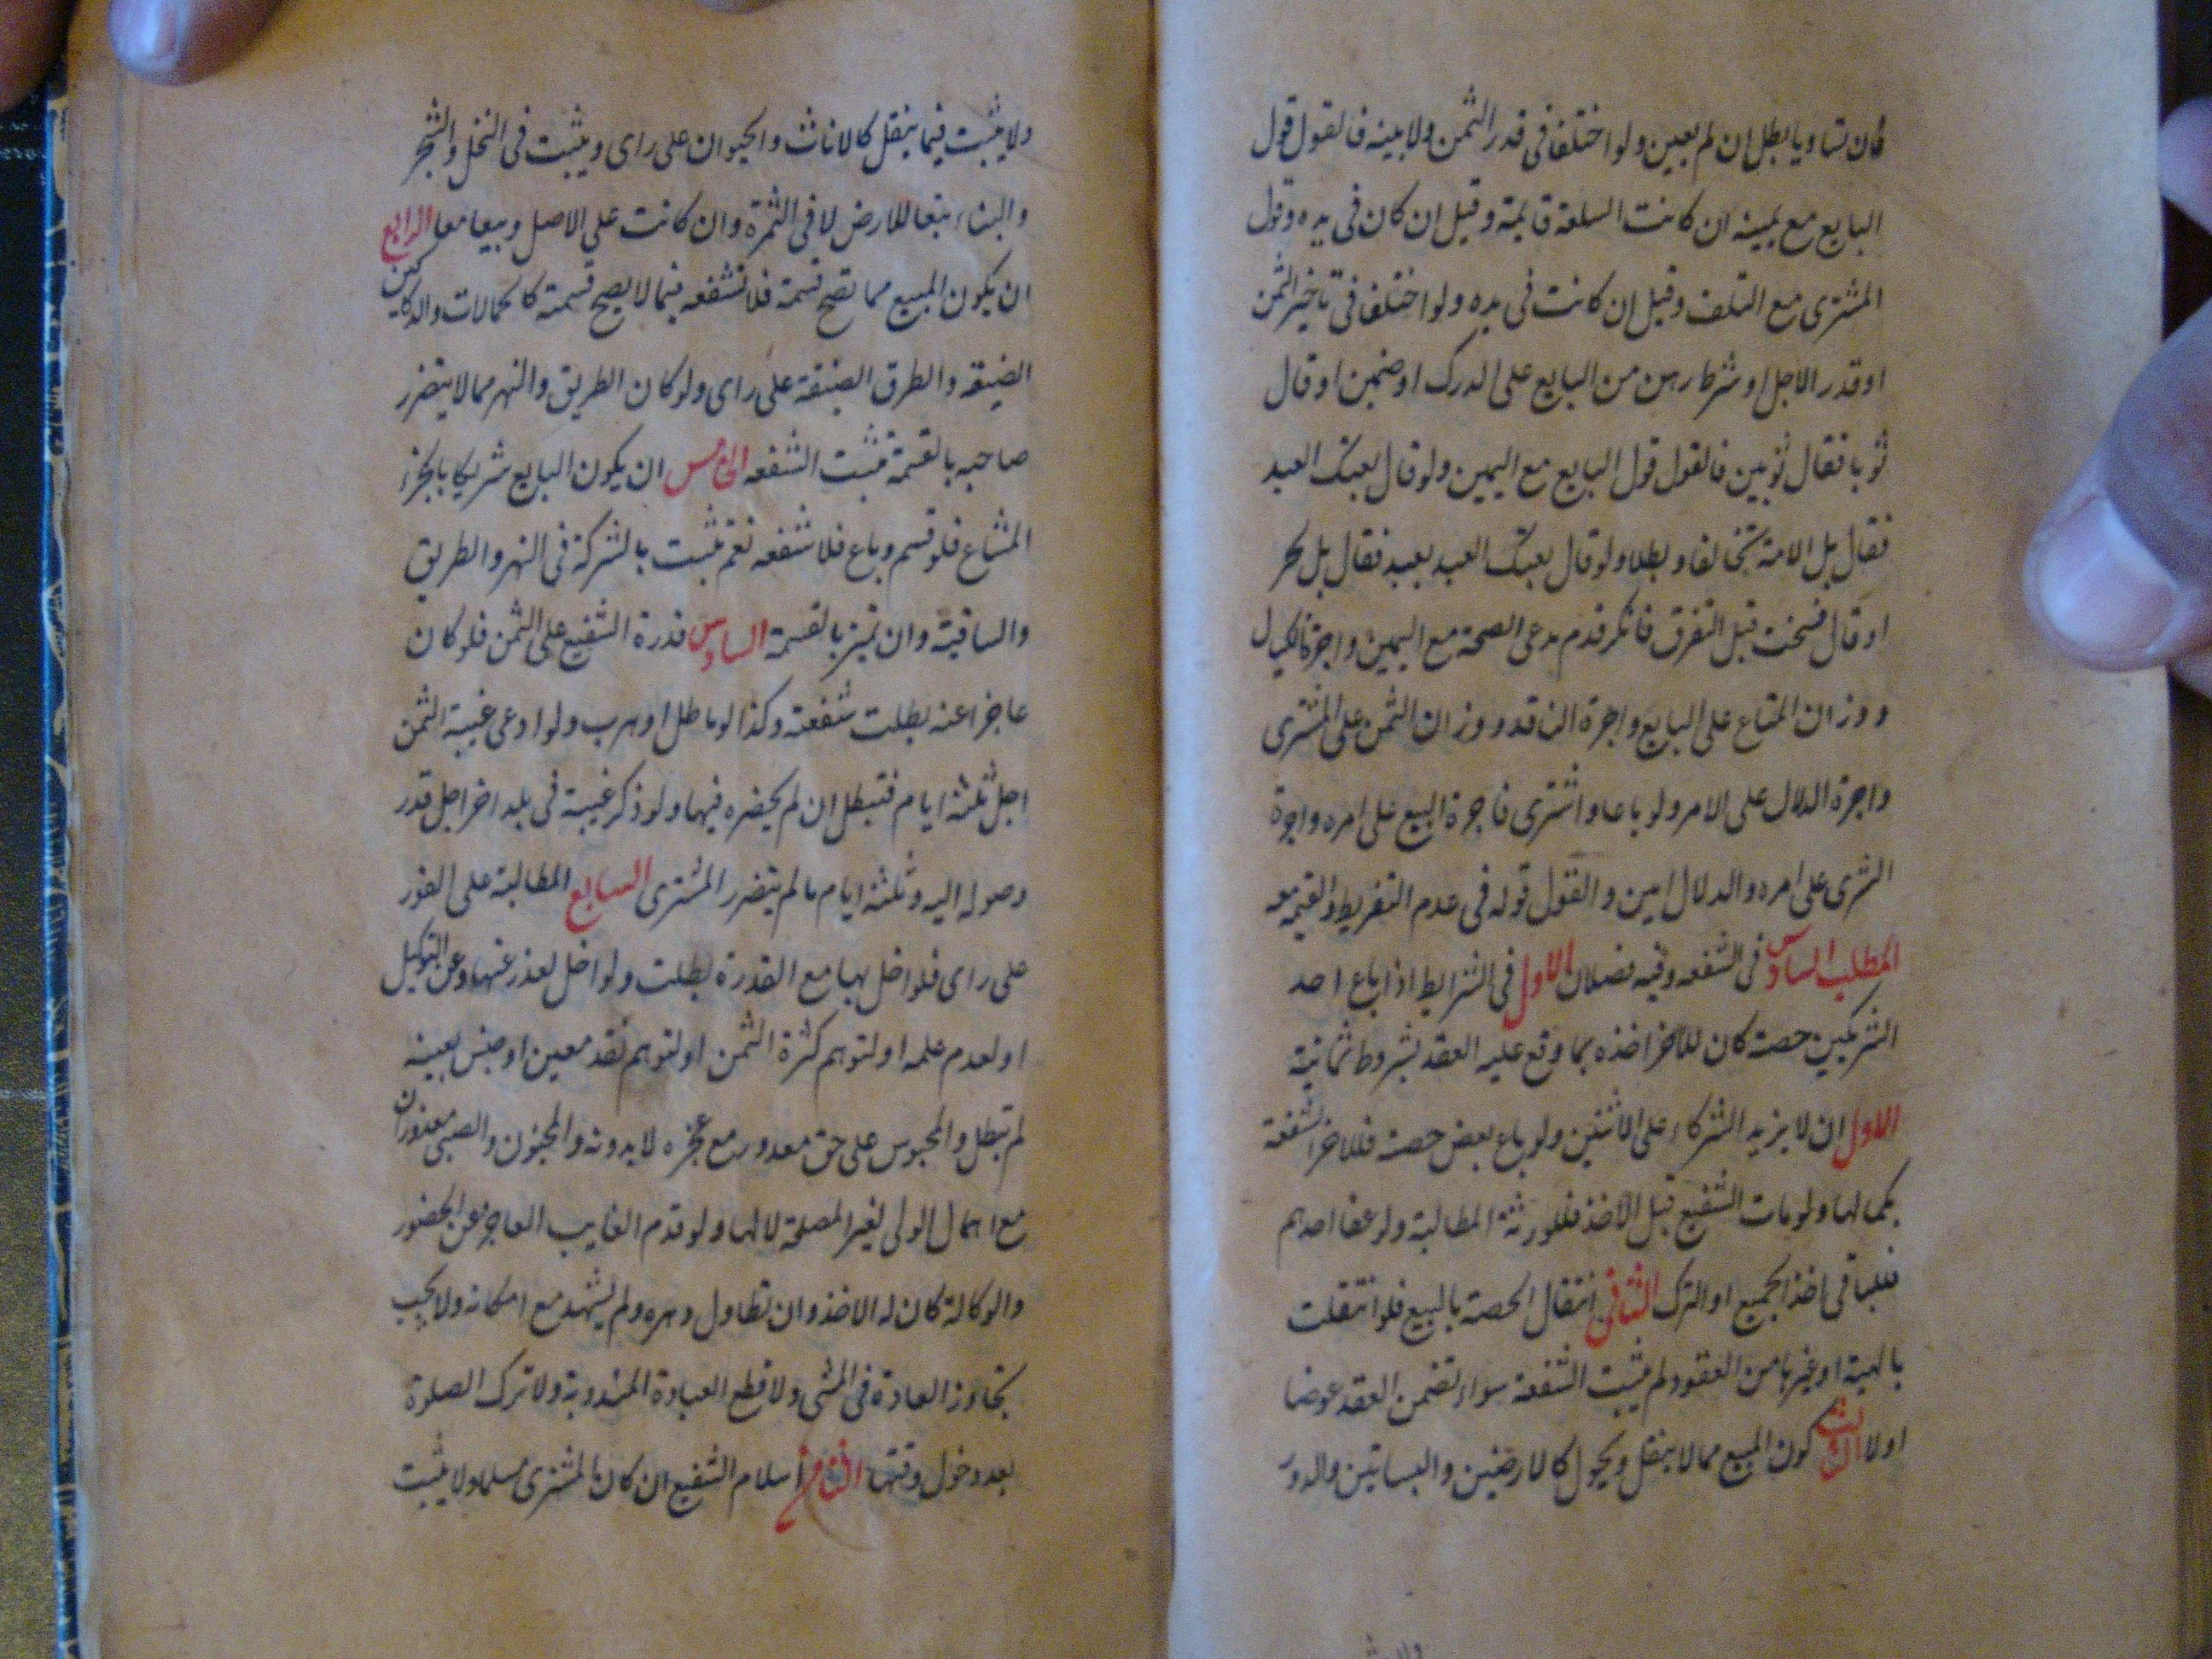 فان تساويا بطل ان لم يعين ولو اختلفا فى قدر الثمن ولا بينه فالقول قول
البايع مع يمينه ان كانت السلعة قايمة وقيل ان كان فى يده وقول
المشترى مع التلف وقيل ان كانت فى يده ولو اختلفا فى تاخير الثمن
او قدر الاجل او شرط رهن من البايع على الدرك او ضمين او قال
ثوبا فقال ثوبين فالقول قول البايع مع اليمين ولو قال بعتك العبد
فقال بل الامة تحالفا وبطلا ولو قال بعتك العبد بعبد فقال بل بحر
او قال فسخت قبل التفرق فانكر قدم مدعى الصحة مع اليمين واجرة الكيال
ووزان المتاع على البايع واجرة الناقد ووزان الثمن على المشترى
واجرة الدلال على الامر ولو باع او اشترى فاجرة البيع على امره واجرة
الشرى على امره والدلال امين والقول قوله فى عدم التفريط والقيمة معه
المطلب السادس فى الشفعه وفيه فصلان الاول فى الشرايط اذا باع احد
الشريكين حصته كان للاخر اخذه بما وقع عليه العقد بشروط ثمانية
الاول ان لا يزيد الشركاء على الاثنين ولو باع بعض حصته فللاخر الشفعة
بكمالها ولو مات الشفيع قبل الاخذ فللورثة المطالبة ولو عفا احدهم
فللباقى اخذ الجميع او الترك الثانى انتقال الحصة بالبيع فلو انتقلت
بالهبة او غيرها من العقود لم يثبت الشفعة سواء تضمن العقد عوضا
او لا الثالث كون المبيع مما لا ينقل ويحول كالارضين والبساتين والدور
ولا يثبت فيما ينقل كالاثاث والحيوان على راى ويثبت فى النخل والشجر
والبناء تبعا للارض لا فى الثمرة وان كانت على الاصل وبيعا معا الرابع
ان يكون المبيع مما تصح قسمة فلا شفعه فيما لا يصح قسمته كالحمامات والدكاكين
الضيقه والطرق الضيقة على راى ولو كان الطريق والنهر مما لا يتضرر
صاحبه بالقسمة تثبت الشفعه الخامس ان يكون البايع شريكا بالجزء
المشاع فلو قسم وباع فلا شفعه نعم تثبت بالشركة فى النهر والطريق
والساقية وان تميز بالقسمة السادس قدرة الشفيع على الثمن فلو كان
عاجزا عنه بطلت شفعته وكذا لو ماطل او هرب ولو ادعى غيبة الثمن
اجل ثلثة ايام فتبطل ان لم يحضره فيها ولو ذكر غيبة فى بلد اخر اجل قدر
وصوله اليه وثلثة ايام ما لم يتضرر المشترى السابع المطالبة على الفور
على راى فلو اخل بها مع القدرة بطلت ولو اخل لعذر عنها وعن التوكيل
او لعدم علمه او لتوهم كثرة الثمن او لتوهم نقد معين او جنس بعينه
لم تبطل والمحبوس على حق معذور مع عجزه لا بدونه والمجنون والصبى معذوران
مع اهمال الولى لغير المصلحة لا لها ولو قدم الغايب العاجز عن الحضور
والوكالة كان له الاخذ وان تطاول دهره ولم يشهد مع امكانه ولا يجب
تجاوز العادة فى المشى ولا قطع العبادة المندوبة ولا ترك الصلوة
بعد دخول وقتها الثامن اسلام الشفيع ان كان المشترى مسلما ولا يثبت